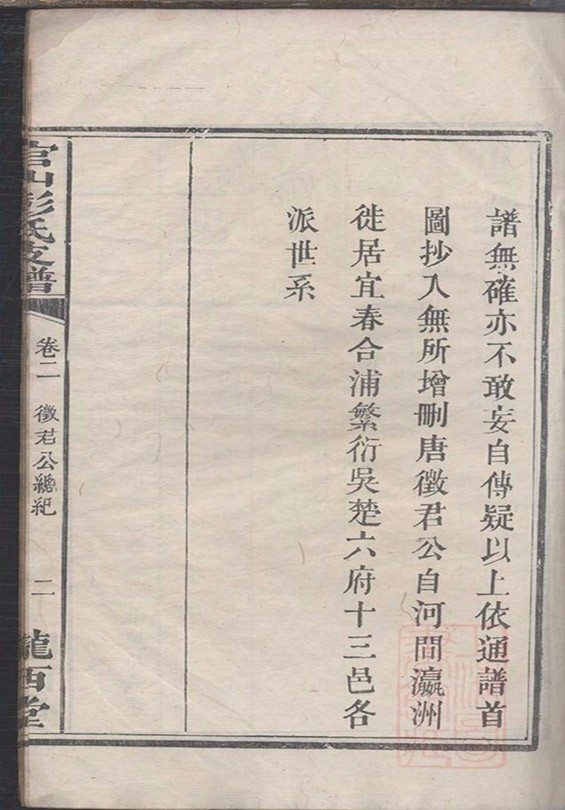 譜無確亦不敢妄自傳疑以上依通譜首
圖抄入無所增刪唐徵君公自河問瀛洲
徙居宜春合浦繁衍吳楚六府十三邑各
派世系
官山彭氏支譜
卷二
徵君公總紀
二
隴西堂